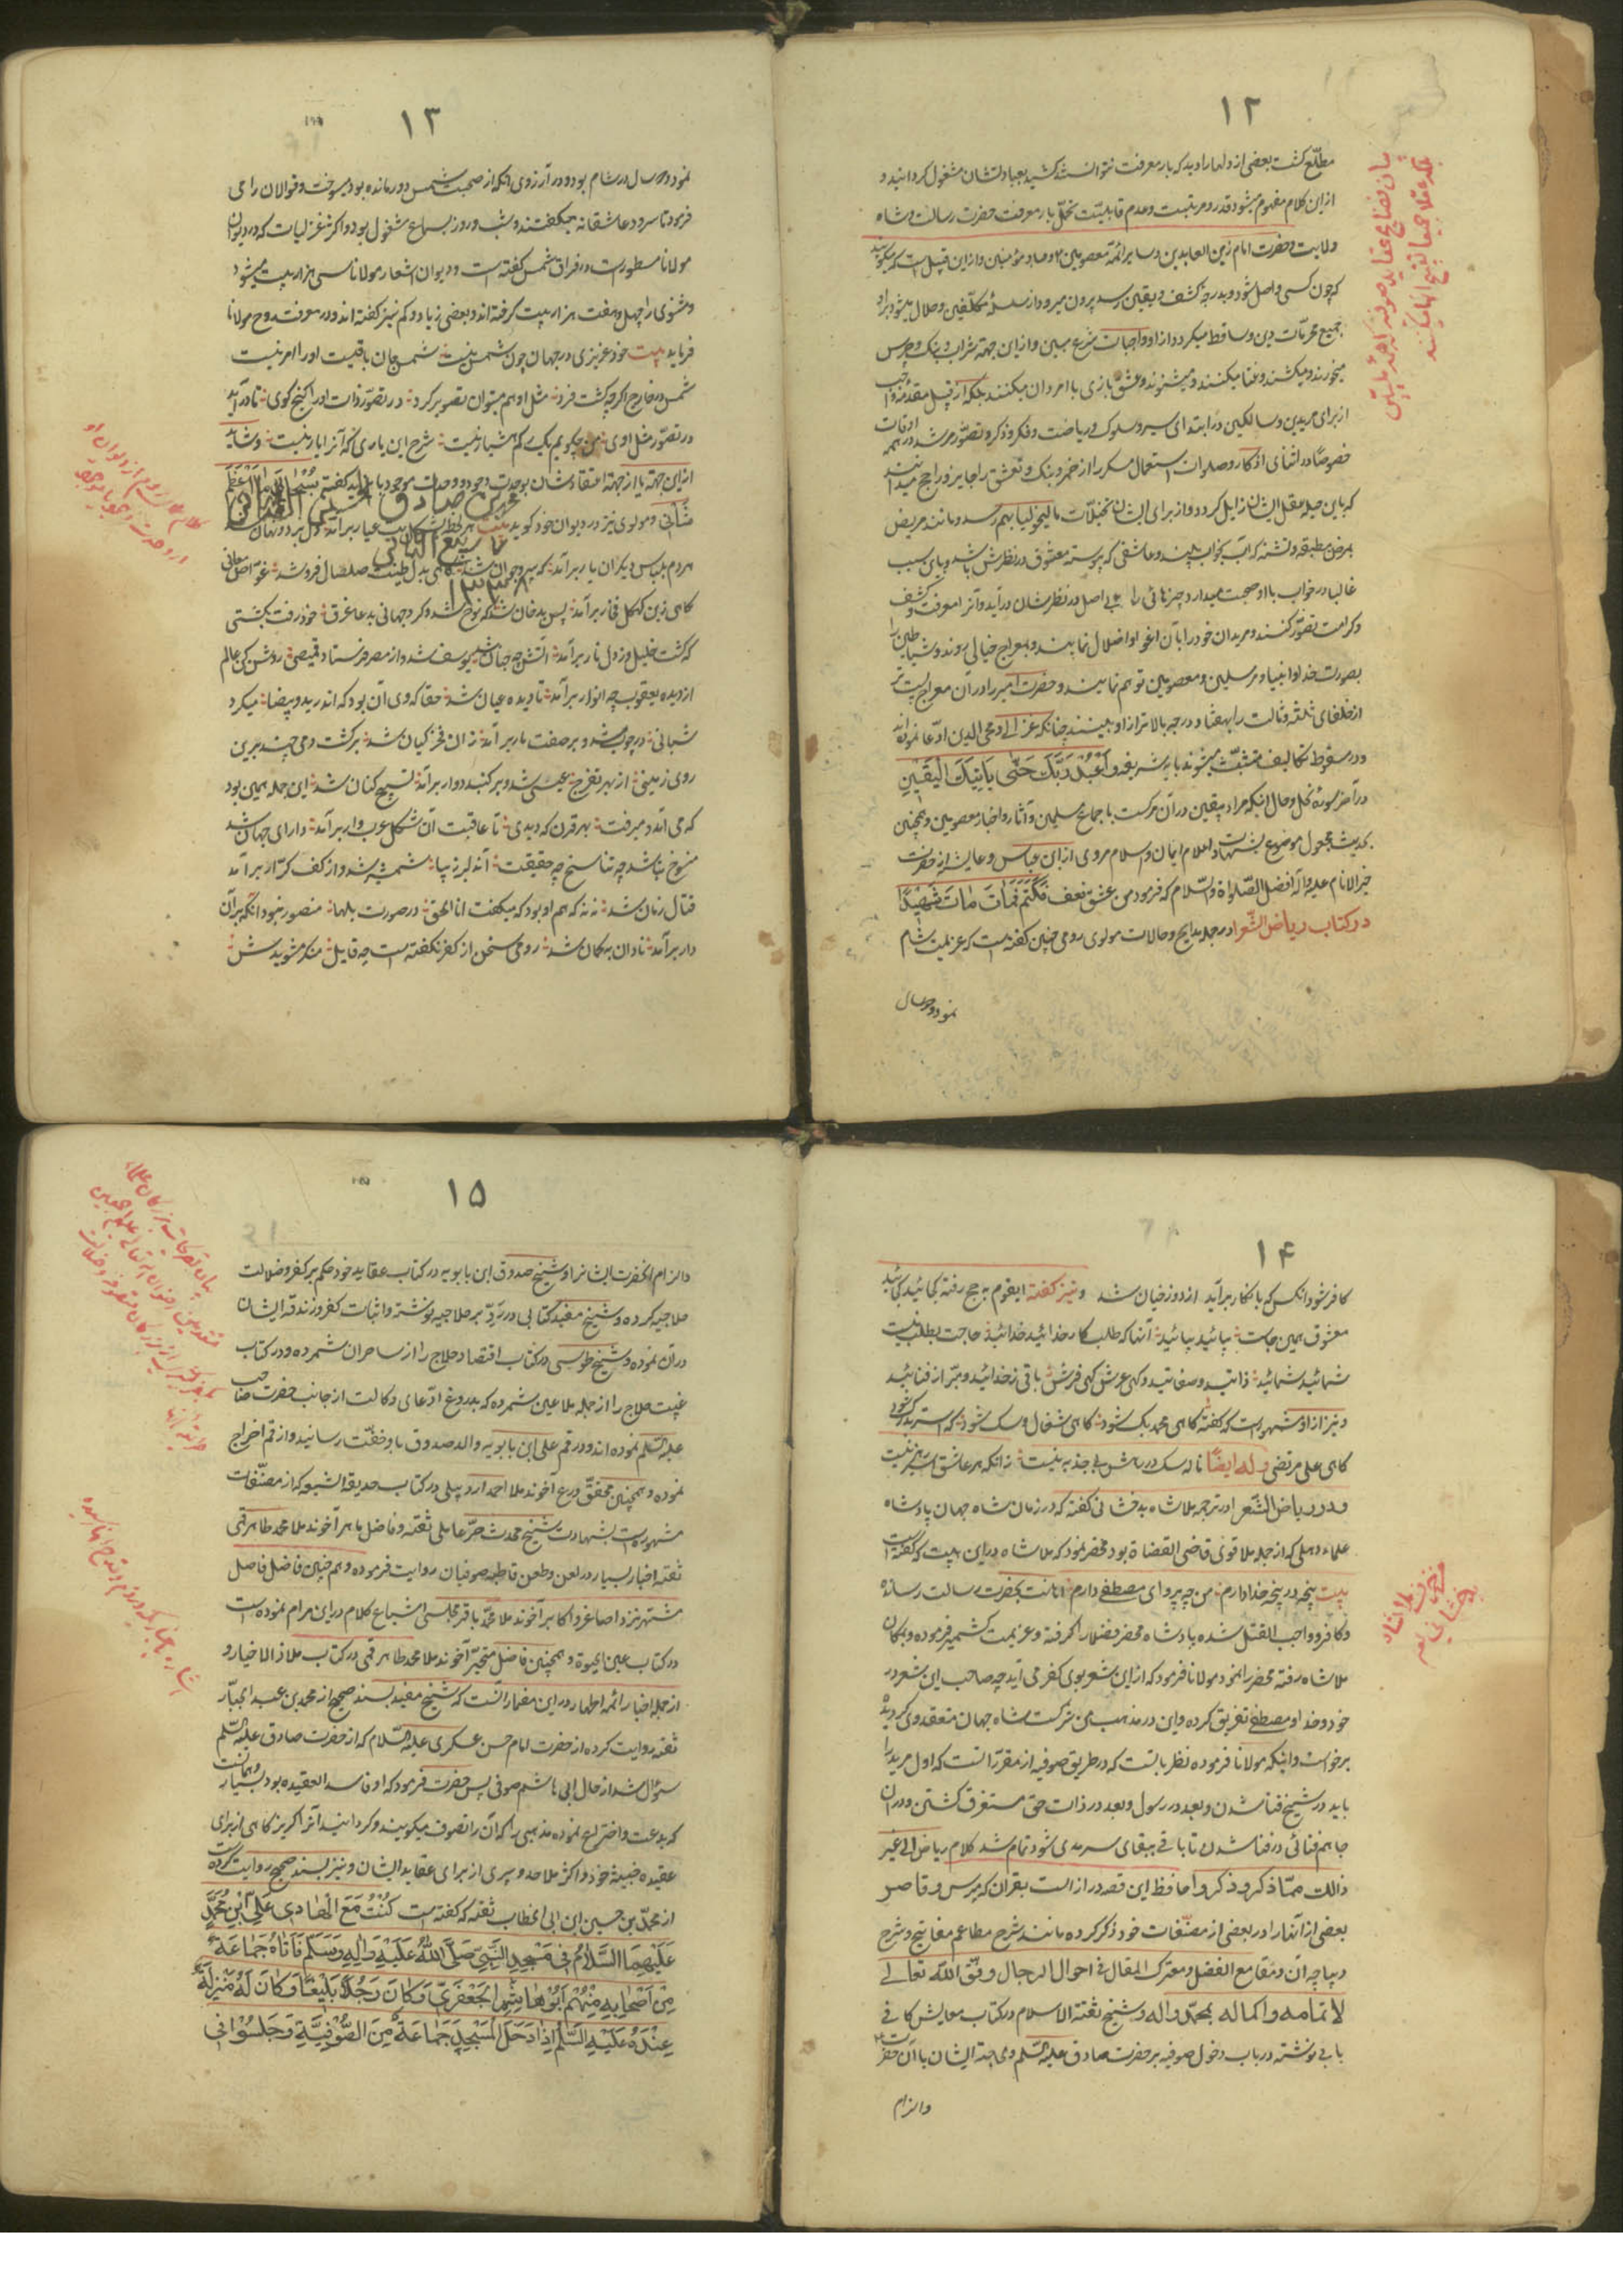 ۱۲
مطلّع کشت بعضی از دلها را دید که بار معرفت نتوانستند کشید بعبادتشان مشغول کردانید و
از این کلام مفهوم میشود قدر و مرتبت و عدم قابلیّت تحمّل بار معرفت حضرت رسالت و شاه
ولایت و حضرت امام زین العابدین و سایر ائمّه معصومین و عباد مؤمنین و از این قبیل است که میکویند
که چون کسی واصل شود و بدرجهٔ کشف و یقین رسد بیرون میرود از سلسلهٔ مکلّفین و حلال میشود بر او
جمیع محرمات دین و ساقط میکردد از او واجبات شرع مبین و از این جهته شراب و بنک و چرس
میخورند و میکشند و غنا میکنند و میشنوند و عشق بازی با امردان میکنند بلکه از قبیل مقدّمهٔ واجب
از برای مریدین و سالکین در ابتدای سیر و سلوک و ریاضت و فکر و ذکر و تصوّر مرشد در همه اوقات
خصوصاً در اثنای اذکار و صلوات استعمال مسکر را از خمر و بنک و تعشق را جایز و راجح میدانند
که باین حیله عقل ایشان زایل کردد و از برای ایشان تخیّلات مالیخولیا بهم رسد و مانند مریض
بمرض مطبقه و تشنه که آب بخواب بیند و عاشقی که پیوسته معشوق در نظرش باشد و بای سبب
غالبا در خواب با او صحبت میدارد چیزهائی را بی اصل در نظرشان در آید و آنرا معرفت و کشف
و کرامت تصوّر کنند و مریدان خود را بآن اغوا و اضلال نمایند و بمعراج خیالی روند و شیاطین را
بصورت خدا و انبیا و مرسلین و معصومین توهم نمایند و حضرت امیر را در آن معراج پست تر
از خلفای ثلثه و ثالث را بهفتاد درجه بالاتر از او ببینند چنانکه غزالی و محی الدین ادّعا نموده اند
و در سقوط تکالیف متشبّث میشوند بایه شریفه وَاعْبُدْ رَبَّكَ حَتّٰى يَأْتِيَكَ الْيَقِينُ
در آخر سورهٔ نحل و حال انکه مراد بیقین در آن مرکست باجماع مسلمین و آثار و اخبار معصومین و همچنین
بحدیث مجعول موضوع بشهادت اعلام ایمان و اسلام مروی از ابن عباس و عایشه از حضرت
خیر الانام علیه و آله افضل الصّلواة و السّلام که فرمود من عشق فعف فَكَتَمَ فَمَاتَ مَاتَ شَهِيدًا
در کتاب ریاض الشّعرا در جلد مدایح و حالات مولوی رومی چنین کفته است که عزیمت شام
نمود و دو سال
بیان فضایح عقاید صوفیه
۱۳
نمود دو سال در شام بود و در آرزوی آنکه از صحبت شمس دور مانده بود میسوخت و قوالان را می
فرمود تا سرود عاشقانه میکفتند و شب و روز بسماع مشغول بود و اکثر غزلیات که در دیوان
مولانا مسطور است در فراق شمس کفته است و دیوان اشعار مولانا سی هزار بیت میشود
و مثنوی را چهل و هفت هزار بیت کرفته اند و بعضی زیاد و کم نیز کفته اند و در معرفت روح مولانا
فرماید بیت خود غریبی در جهان چون شمس نیست شمس جان باقیست او را امر نیست
شمس در خارج اکرچه کشت فرد مثل او هم میتوان تصویر کرد در تصوّر ذات او را کنج کوی تا در آید
در تصوّر مثل اوی من چکویم یک رکم هشیار نیست شرح این یاری که آنرا یار نیست و شاید
از این جهته یا از جهته اعتقادشان بوحدت وجود و وحدت موجود بایزید کفته سُبْحَانِي مَا اَعْظَمَ
شَأْنِي و مولوی نیز در دیوان خود کوید بیت هر لحظه بشکلی بت عیار بر آمد دل برد و نهان شد
هر دم بلباس دیکر آن یار بر آمد که پیر و جوان شد کاهی بدل طینت صلصال فرو شد غوّاص معانی
کاهی ز بن کهکل فخار بر آمد پس بدخان شد که نوح شد و کرد جهانی بدعا غرق خود رفت بکشتی
که کشت خلیل و ز دل نار بر آمد آتش چه جنان شد یوسف شد و از مصر فرستاد قمیصی روشن کن عالم
از دیده یعقوب چه انوار بر آمد تا دیده عیان شد حقا که وی آن بود که اندر ید و بیضا میکرد
شبانی در چوب شد و بر صفت مار بر آمد زان فخر کیان شد بر کشت دمی چند برین
روی زمینی از بهر تفرج عیسی شد و بر کنبد دوار بر آمد تسبیح کنان شد این جمله همین بود
که می آمد و میرفت بهر قرن که دیدی تا عاقبت آن شکل عرب وار بر آمد دارای جهان شد
منسوخ نباشد چه تناسخ چه حقیقت آن دلبر زیبا شمشیر شد و از کف کرّار بر آمد
قتال زمان شد نه نه که هم او بود که میکفت انا الحق در صورت بلها منصور نبود آنکه بر آن
دار بر آمد نادان بکمان شد رومی سخن از کفر نکفته است چه قایل منکر مشویدش
محمد صادق الحسینی
ربیع الثانی
۱۳۳۸
۱۴
کافر شود آنکس که بانکار بر آید از دوزخیان شد و نیز کفته ایقوم بحج رفته کجائید کجائید
معشوق همین جاست بیائید بیائید آنها که طلبکار خدائید خدائید حاجت بطلب نیست
شمائید شمائید ذاتید و صفاتید و کهی عرش کهی فرش باقی ز خدائید و مبرّا ز فنائید
و نیز از او مشهور است که کفته کاهی محمد بک شود کاهی شغال و سک شود
کاهی علی مرتضی وله ایضاً ناله سک در رهش بی جذبه نیست زانکه هر عاشق
و در ریاض الشّعرا در ترجمه ملاشاه بدخشانی کفته که در زمان شاه جهان پادشاه
علماء دهلی که از جمله ملا قوی قاضی القضاة بود محضر نمود که ملاشاه در این بیت که کفته است
بیت پنجه در پنجه خدا دارم من چه پروای مصطفی دارم اهانت بحضرت رسالت رسانده
و کافر و واجب القتل شده پادشاه محضر فضلا را کرفته و عزیمت کشمیر فرموده و بمکان
ملاشاه رفته محضر را نمود مولانا فرمود که از این شعر بوی کفر می آید چه صاحب این شعر در
خود و خدا و مصطفی تفریق کرده و این در مذهب من شرکست شاه جهان معتقد وی کردیده
برخواست و اینکه مولانا فرموده نظر بانست که در طریق صوفیه از مقررّات است که اول مرید را
باید در شیخ فنا شدن و بعد در رسول و بعد در ذات حق مستغرق کشتن و در ان
جا هم فنائی در فنا شدن تا باقی ببقای سرمدی شود تمام شد کلام ریاض الی غیر
ذالك ممّا ذکر و ذکروا حافظ این قصه دراز است بقرآن که مپرس و قاصر
بعضی از آنها را در بعضی از مصنّفات خود ذکر کرده مانند شرح مطاعم مفاتیح و شرح
دیباچه آن و مقامع الفضل و معترک المقال فی احوال الرجال وفّق اللّه تعالی
لاتمامه و اکماله بمحمّد و اله و شیخ ثقة الاسلام در کتاب معایش کافی
بابی نوشته در باب دخول صوفیه بر حضرت صادق علیه السّلم و مباحثه ایشان با آن حضرت
والزام
ملاشاه بدخشانی
۱۵
والزام آنحضرت ایشانرا و شیخ صدوق ابن بابویه در کتاب عقاید خود حکم بر کفر و ضلالت
حلاجیه کرده و شیخ مفید کتابی در ردّ بر حلاجیه نوشته و اثبات کفر و زندقه ایشان
در آن نموده و شیخ طوسی در کتاب اقتصاد حلاج را از ساحران شمرده و در کتاب
غیبت حلاج را از جمله ملاعین شمرده که بدروغ ادّعای وکالت از جانب حضرت صاحب
علیه السّلم نموده اند و در قم علی ابن بابویه والد صدوق باو خفّت رسانید و از قم اخراج
نموده و همچنین محقّق ورع آخوند ملا احمد اردبیلی در کتاب حدیقة الشیعه که از مصنّفات
مشهوره است بشهادت شیخ محدث حرّ عاملی ثقه و فاضل ماهر آخوند ملا محمد طاهر قمی
ثقه اخبار بسیار در لعن و طعن قاطبه صوفیان روایت فرموده و هم چنین فاضل فاصل
مشتهر نزد اصاغر و اکابر آخوند ملا محمّد باقر مجلسی اشباع کلام در این مرام نموده است
در کتاب عین الحیوة و همچنین فاضل متبحّر آخوند ملا محمد طاهر قمی در کتاب ملاذ الاخیار و
از جمله اخبار ائمه اطهار در این مضمار آنست که شیخ مفید بسند صحیح از محمد بن عبد الجبّار
ثقه روایت کرده از حضرت امام حسن عسکری علیه السّلام که از حضرت صادق علیه السّلم
سؤال شد از حال ابی هاشم صوفی پس حضرت فرمود که او فاسد العقیده بود بسیار و همانست
که ببدعت و اختراع نموده مذهبی را که آن را تصوف میکویند و کردانید آنرا کریزکاهی از برای
عقیده خبیثه خود و اکثر ملاحده و سپری از برای عقاید ایشان و نیز بسند صحیح روایت کرده
از محمّد بن حسین ابن ابی الخطاب ثقه که کفته است كُنْتُ مَعَ الْهَادِي عَلِيِّ ابْنِ مُحَمَّدٍ
عَلَيْهِمَا السَّلَامُ فِي مَسْجِدِ النَّبِيِّ صَلَّى اللّٰهُ عَلَيْهِ وَاٰلِهِ وَسَلَّمَ فَأَتَاهُ جَمَاعَةٌ
مِنْ أَصْحَابِهِ مِنْهُمْ أَبُو هَاشِمٍ الْجَعْفَرِيُّ وَكَانَ رَجُلًا بَلِيغًا وَكَانَ لَهُ مَنْزِلَةٌ
عِنْدَهُ عَلَيْهِ السَّلَمُ إِذْ دَخَلَ الْمَسْجِدَ جَمَاعَةٌ مِنَ الصُّوفِيَّةِ وَجَلَسُوا فِي